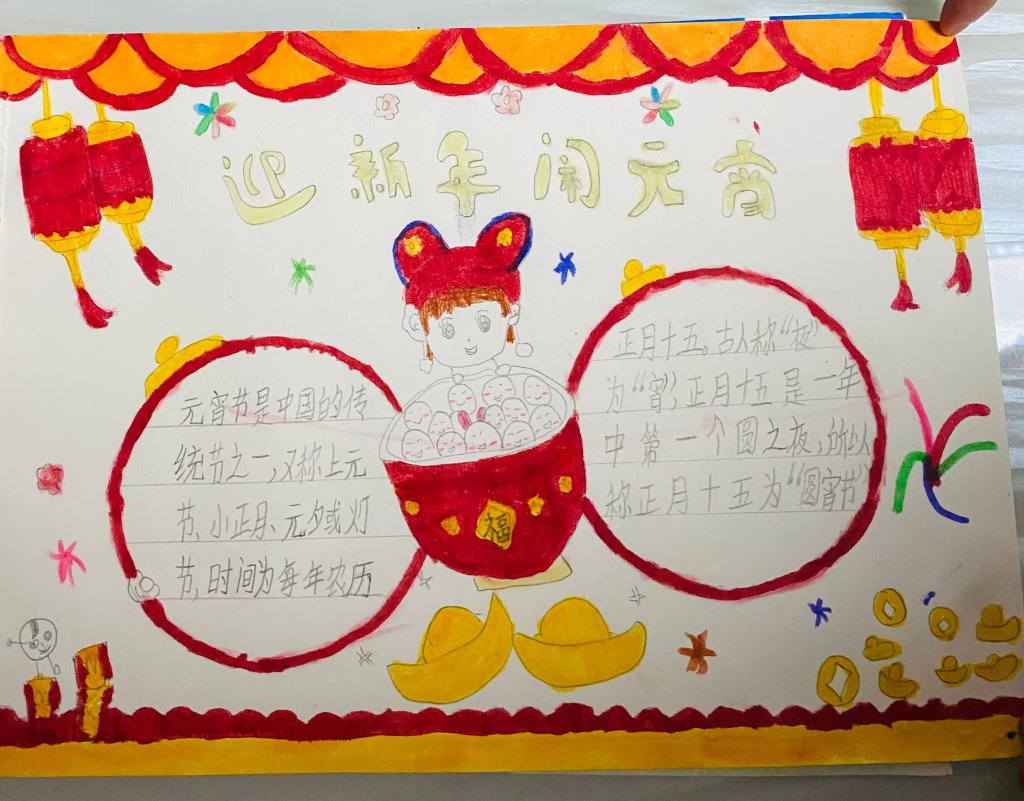 迎新年闹元宵
元宵节是中国的传
统节之一,又称上元
节、小正月、元夕或灯
节,时间为每年农历
福
正月十五。古人称“夜”
为“宵”,正月十五是一年
中第一个圆之夜,所以
称正月十五为“圆宵节”